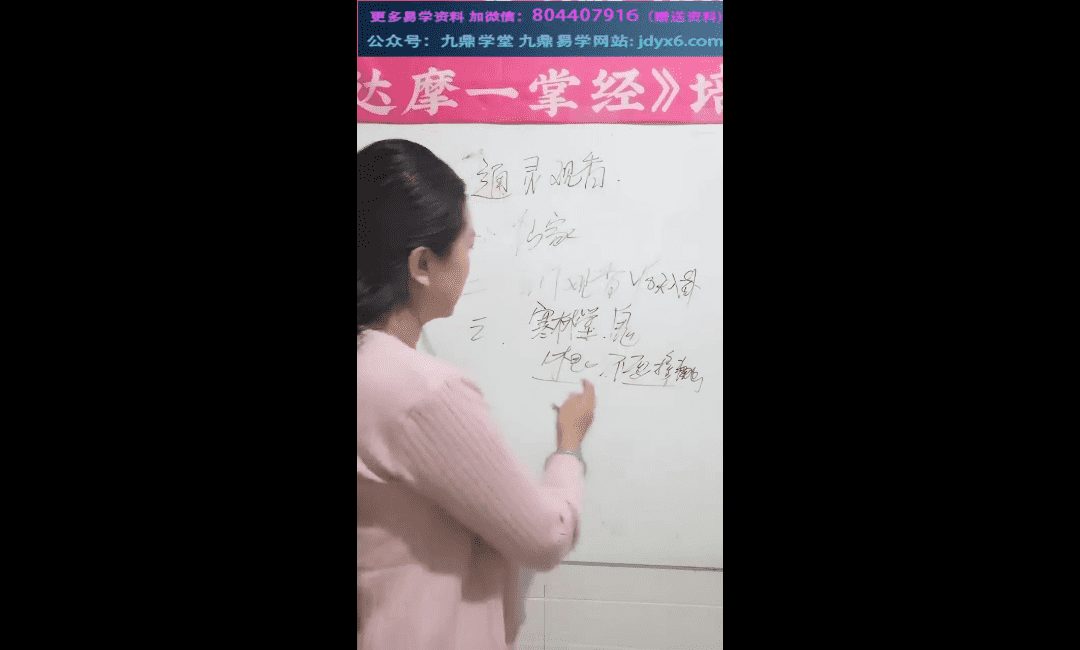 更多易学资料 加微信：804407916（赠送资料)
公众号：九鼎学堂 九鼎易学网站: jdyx6.com
达摩一掌经》培
通灵观香.
仙家
二 观香
三、寒林堂.鬼